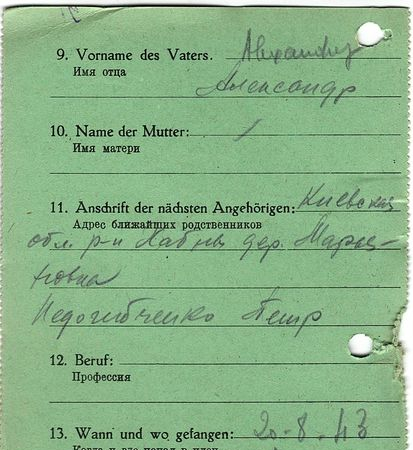 9. Vorname des Vaters. Alexander
Имя отца
Александр
10. Name der Mutter: /
Имя матери
11. Anschrift der nächsten Angehörigen: Киевская
Адрес ближайших родственников
обл. р-н Хабны дер. Марья-
новка
Петр
12. Beruf:
Профессия
13. Wann und wo gefangen: 20-8-43